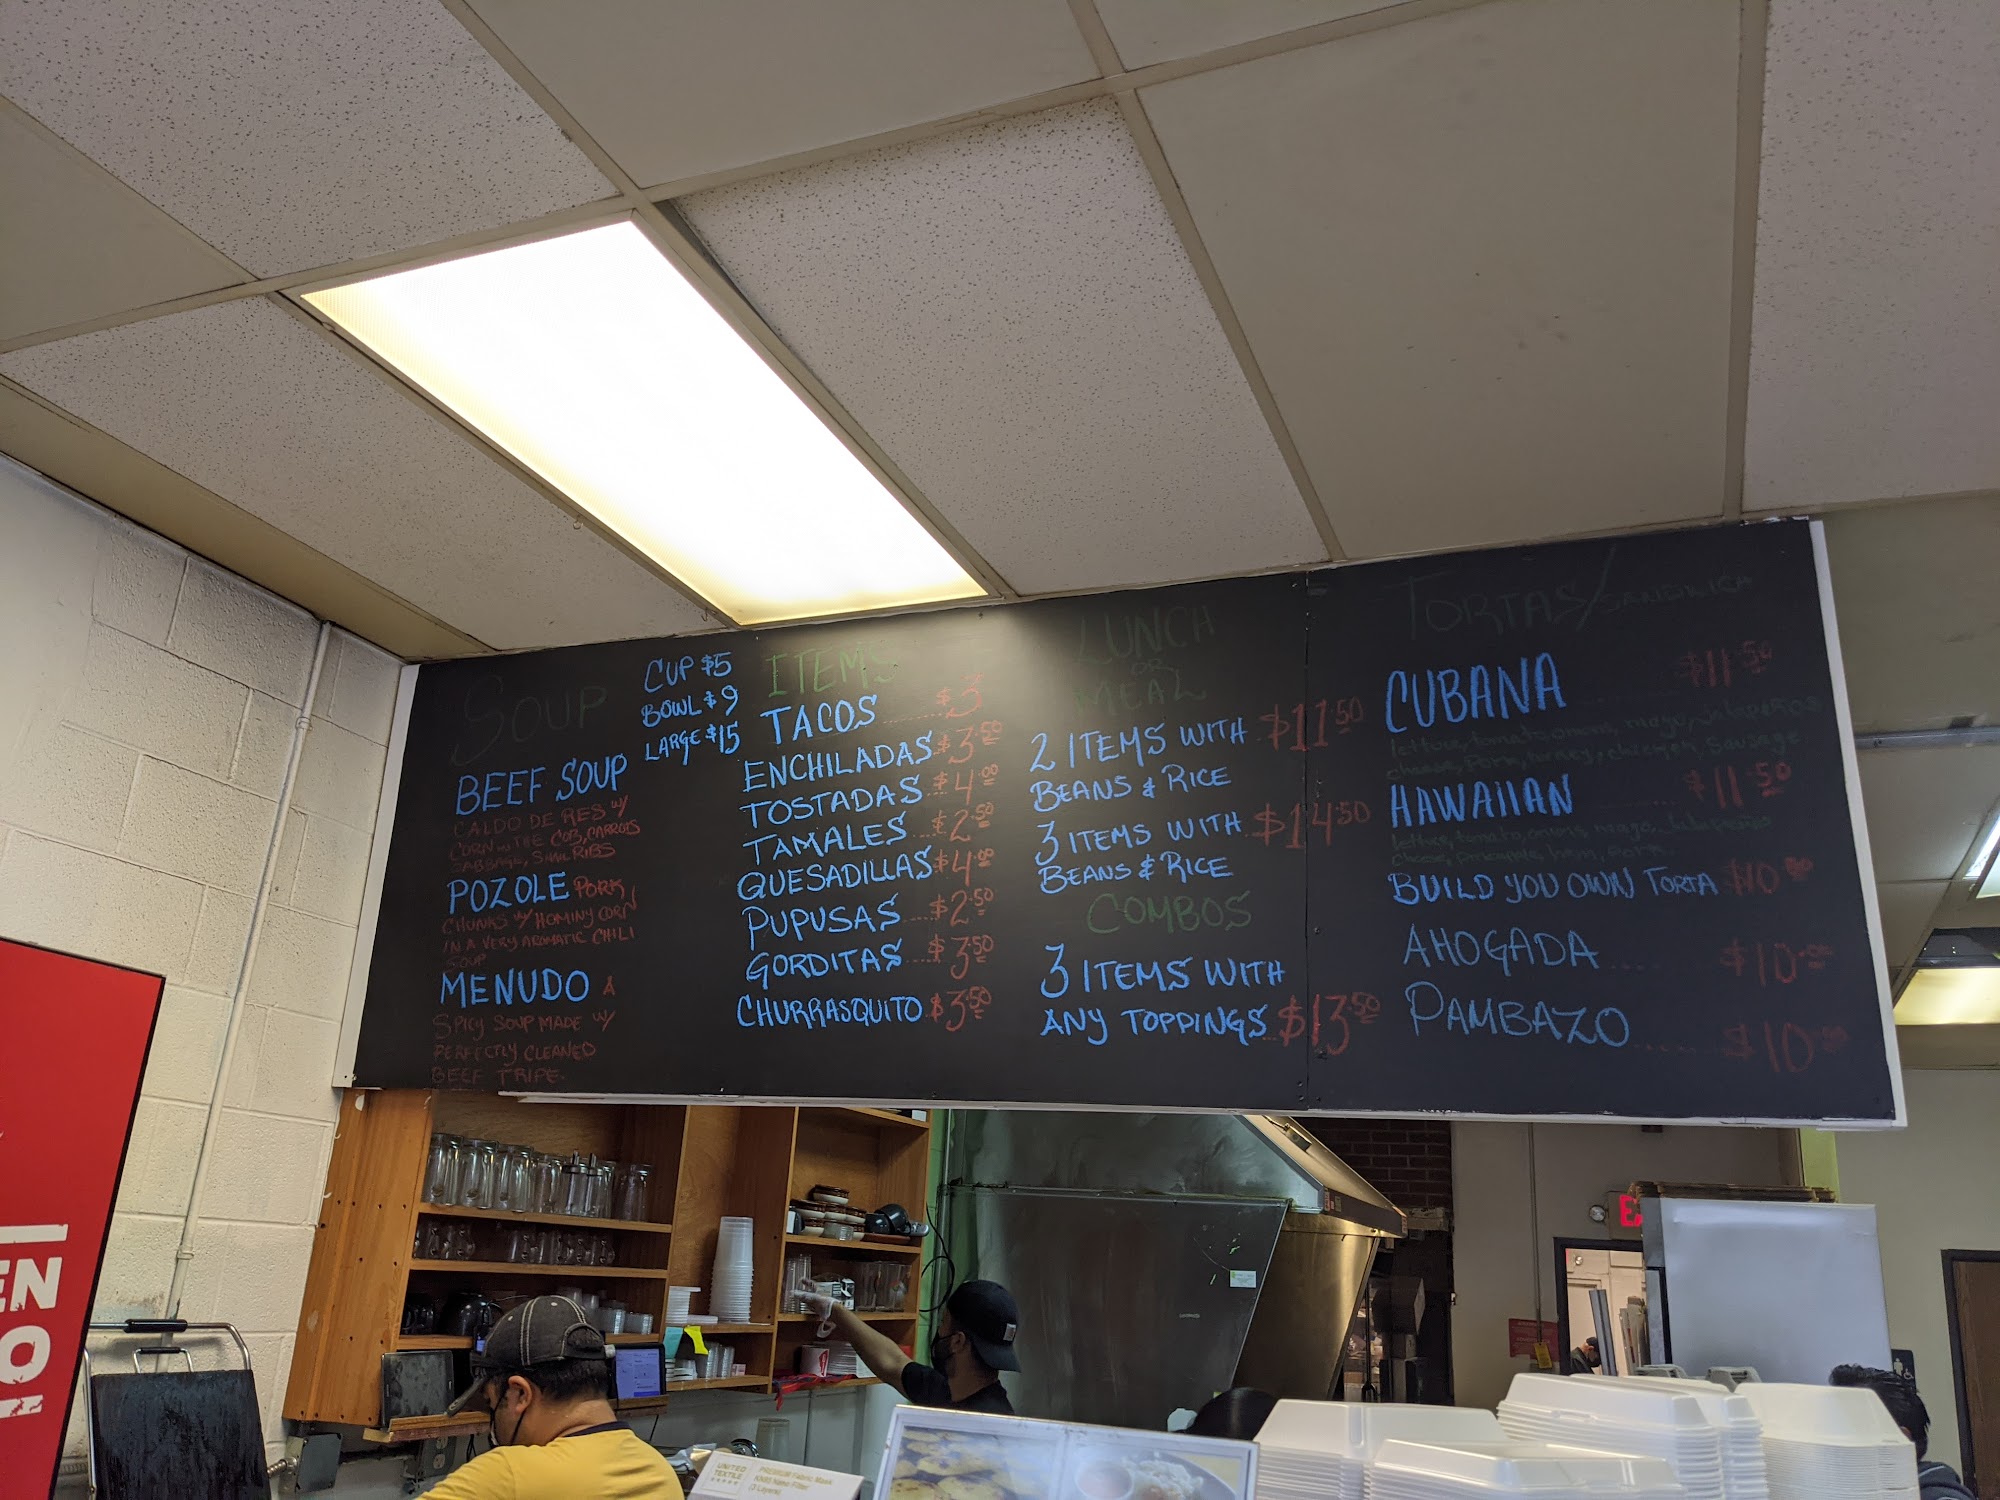 SOUP
CUP $5
BOWL $9
LARGE $15
BEEF SOUP
CALDO DE RES W/
CORN IN THE COB, CARROTS
CABBAGE, SHAL RIBS
POZOLE PORK
CHUNKS W/ HOMINY CORN
IN A VERY AROMATIC CHILI
SOUP
MENUDO A
SPICY SOUP MADE W/
PERFECTLY CLEANED
BEEF TRIPE.
ITEMS
TACOS ........ $3
ENCHILADAS $3.50
TOSTADAS ... $4.00
TAMALES ... $2.50
QUESADILLAS $4.00
PUPUSAS .... $2.50
GORDITAS .... $3.50
CHURRASQUITO $3.50
LUNCH
OR
MEAL
2 ITEMS WITH $11.50
BEANS & RICE
3 ITEMS WITH $14.50
BEANS & RICE
COMBOS
3 ITEMS WITH
ANY TOPPINGS $13.50
TORTAS/SANDWICH
CUBANA ........ $11.50
lettuce, tomato, onions, mayo, Jalapeños
cheese, Pork, turkey, chicken, Sausage
HAWAIIAN ........ $11.50
lettuce, tomato, onions, mayo, Jalapeños
cheese, pineapple, ham, Pork.
BUILD YOU OWN TORTA $10.00
AHOGADA ..... $10.00
PAMBAZO ....... $10.00
EN
O
UNITED
TEXTILE
PREMIUM Fabric Mask
(3 Layers)